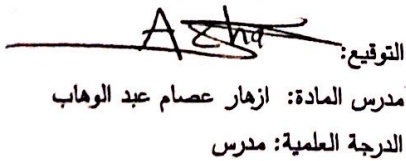 التوقيع: Azha
مدرس المادة: ازهار عصام عبد الوهاب
الدرجة العلمية: مدرس